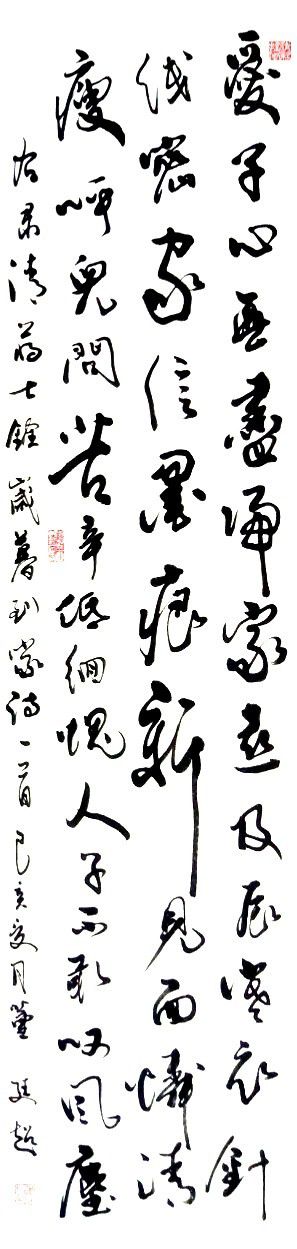 愛子心無盡歸家喜及辰寒衣針
綫密家信墨痕新見面憐清
瘦呼兒問苦辛低徊愧人子不敢叹風塵
右录清蔣士銓歲暮到家詩一首己亥夏月董廷超